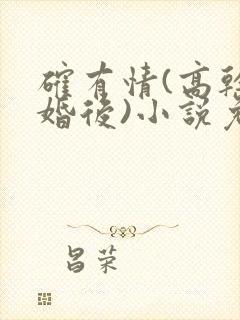 確有情(高幹
婚後)小說
昌荣